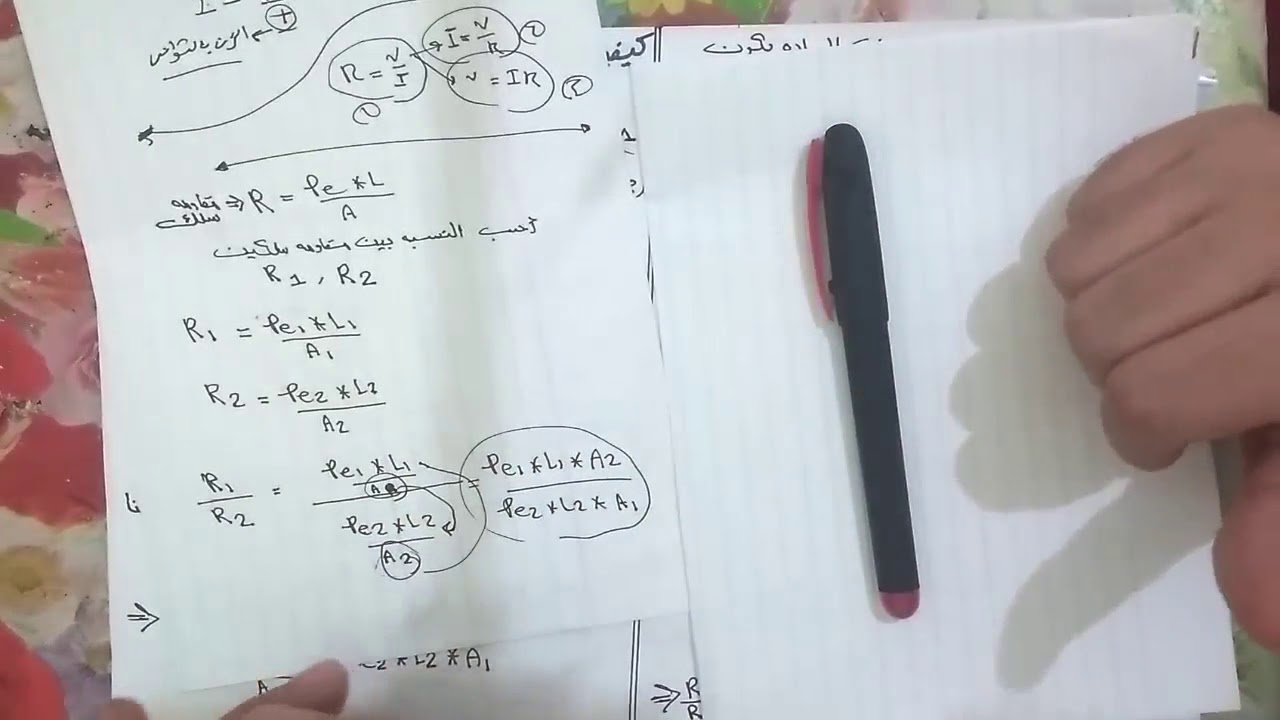 الزمن بالثواني
+
I = V/R
R = V/I
V = IR
مقاومة سلك ⇒ R = ρe * L / A
احسب النسبه بين مقاومه سلكين
R1 , R2
R1 = ρe1 * L1 / A1
R2 = ρe2 * L2 / A2
R1 / R2 = (ρe1 * L1 / A1) / (ρe2 * L2 / A2) = ρe1 * L1 * A2 / ρe2 * L2 * A1
⇒
2 * L2 * A1
A
كيف
تكون
1
⇒ R / R